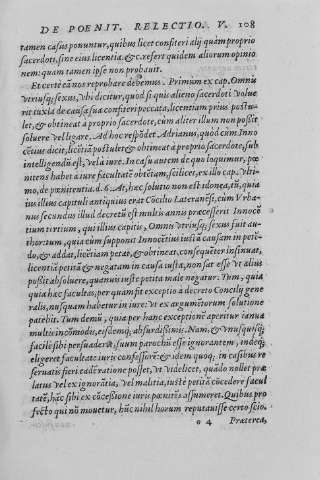 DE POENIT. RELECTIO. V. 108
tamen casus ponuntur, quibus licet confiteri alij quàm proprio
sacerdoti, sine eius licentia. &c. refert quidem aliorum opinio
nem: quam tamen ipse non probauit.
Et certè eā nos reprobare debemus. Primùm ex cap. Omnis
vtriusq; sexus, vbi dicitur, quòd si quis alieno sacerdoti volue
rit iuxta de causa sua confiteri peccata, licentiam prius postu-
let, & obtineat à proprio sacerdote, cùm aliter illum non possit
soluere vel ligare. Ad hoc respōdet Adrianus, quòd cùm Inno
cētius dicit, licētiā postulet & obtineat à proprio sacerdote, sub
intelligendū est, vel à iure. In casu autem de quo loquimur, pœ
nitens habet à iure facultatē obtētam, scilicet, ex illo cap. vlti-
mo, de pœnitentia. d. 6. At, hæc solutio non est idonea, tū, quia
ius illius capituli antiquius erat Cōcilio Lateranēsi, cùm Vrba-
nus secundus illud decretū est multis annis præcesserit Innocē
tium tertium, qui illius capitis, Omnis vtriusq; sexus fuit au-
thor tum, quia cùm supponit Innocētius iustā causam in peten-
do, & addat, licētiam petat, & obtineat, consequēter insinuat,
licentiā petitā & negatam in causa iusta, non sat esse vt alius
possit absoluere, quanuis iustè petita malè negatur. Tum, quia
quia hæc facultas, per quam fit exceptio à decreto Concilij gene
ralis, nusquam habetur in iure: vt ex argumētorum solutione
patebit. Tum demū, quia per hanc exceptionē aperitur ianua
multis incōmodis, eisdemq; absurdissimis. Nam, & vnusquisq;
facilè sibi persuaderet, suum parochū esse ignorantem, indeq;
eligeret facultate iuris confessorē: & idem quoq; in casibus re
seruatis fieri eadē ratione posset, vt videlicet, quādo nollet præ
latus vel ex ignorātia, vel malitia, iustè petitā cōcedere facul
tatē, hāc sibi ex cōcessione iuris pœnitēs assumeret. Quibus pro
fectò qui nō mouetur, hūc nihil horum reputauisse certo scio.
o 4 Præterea,